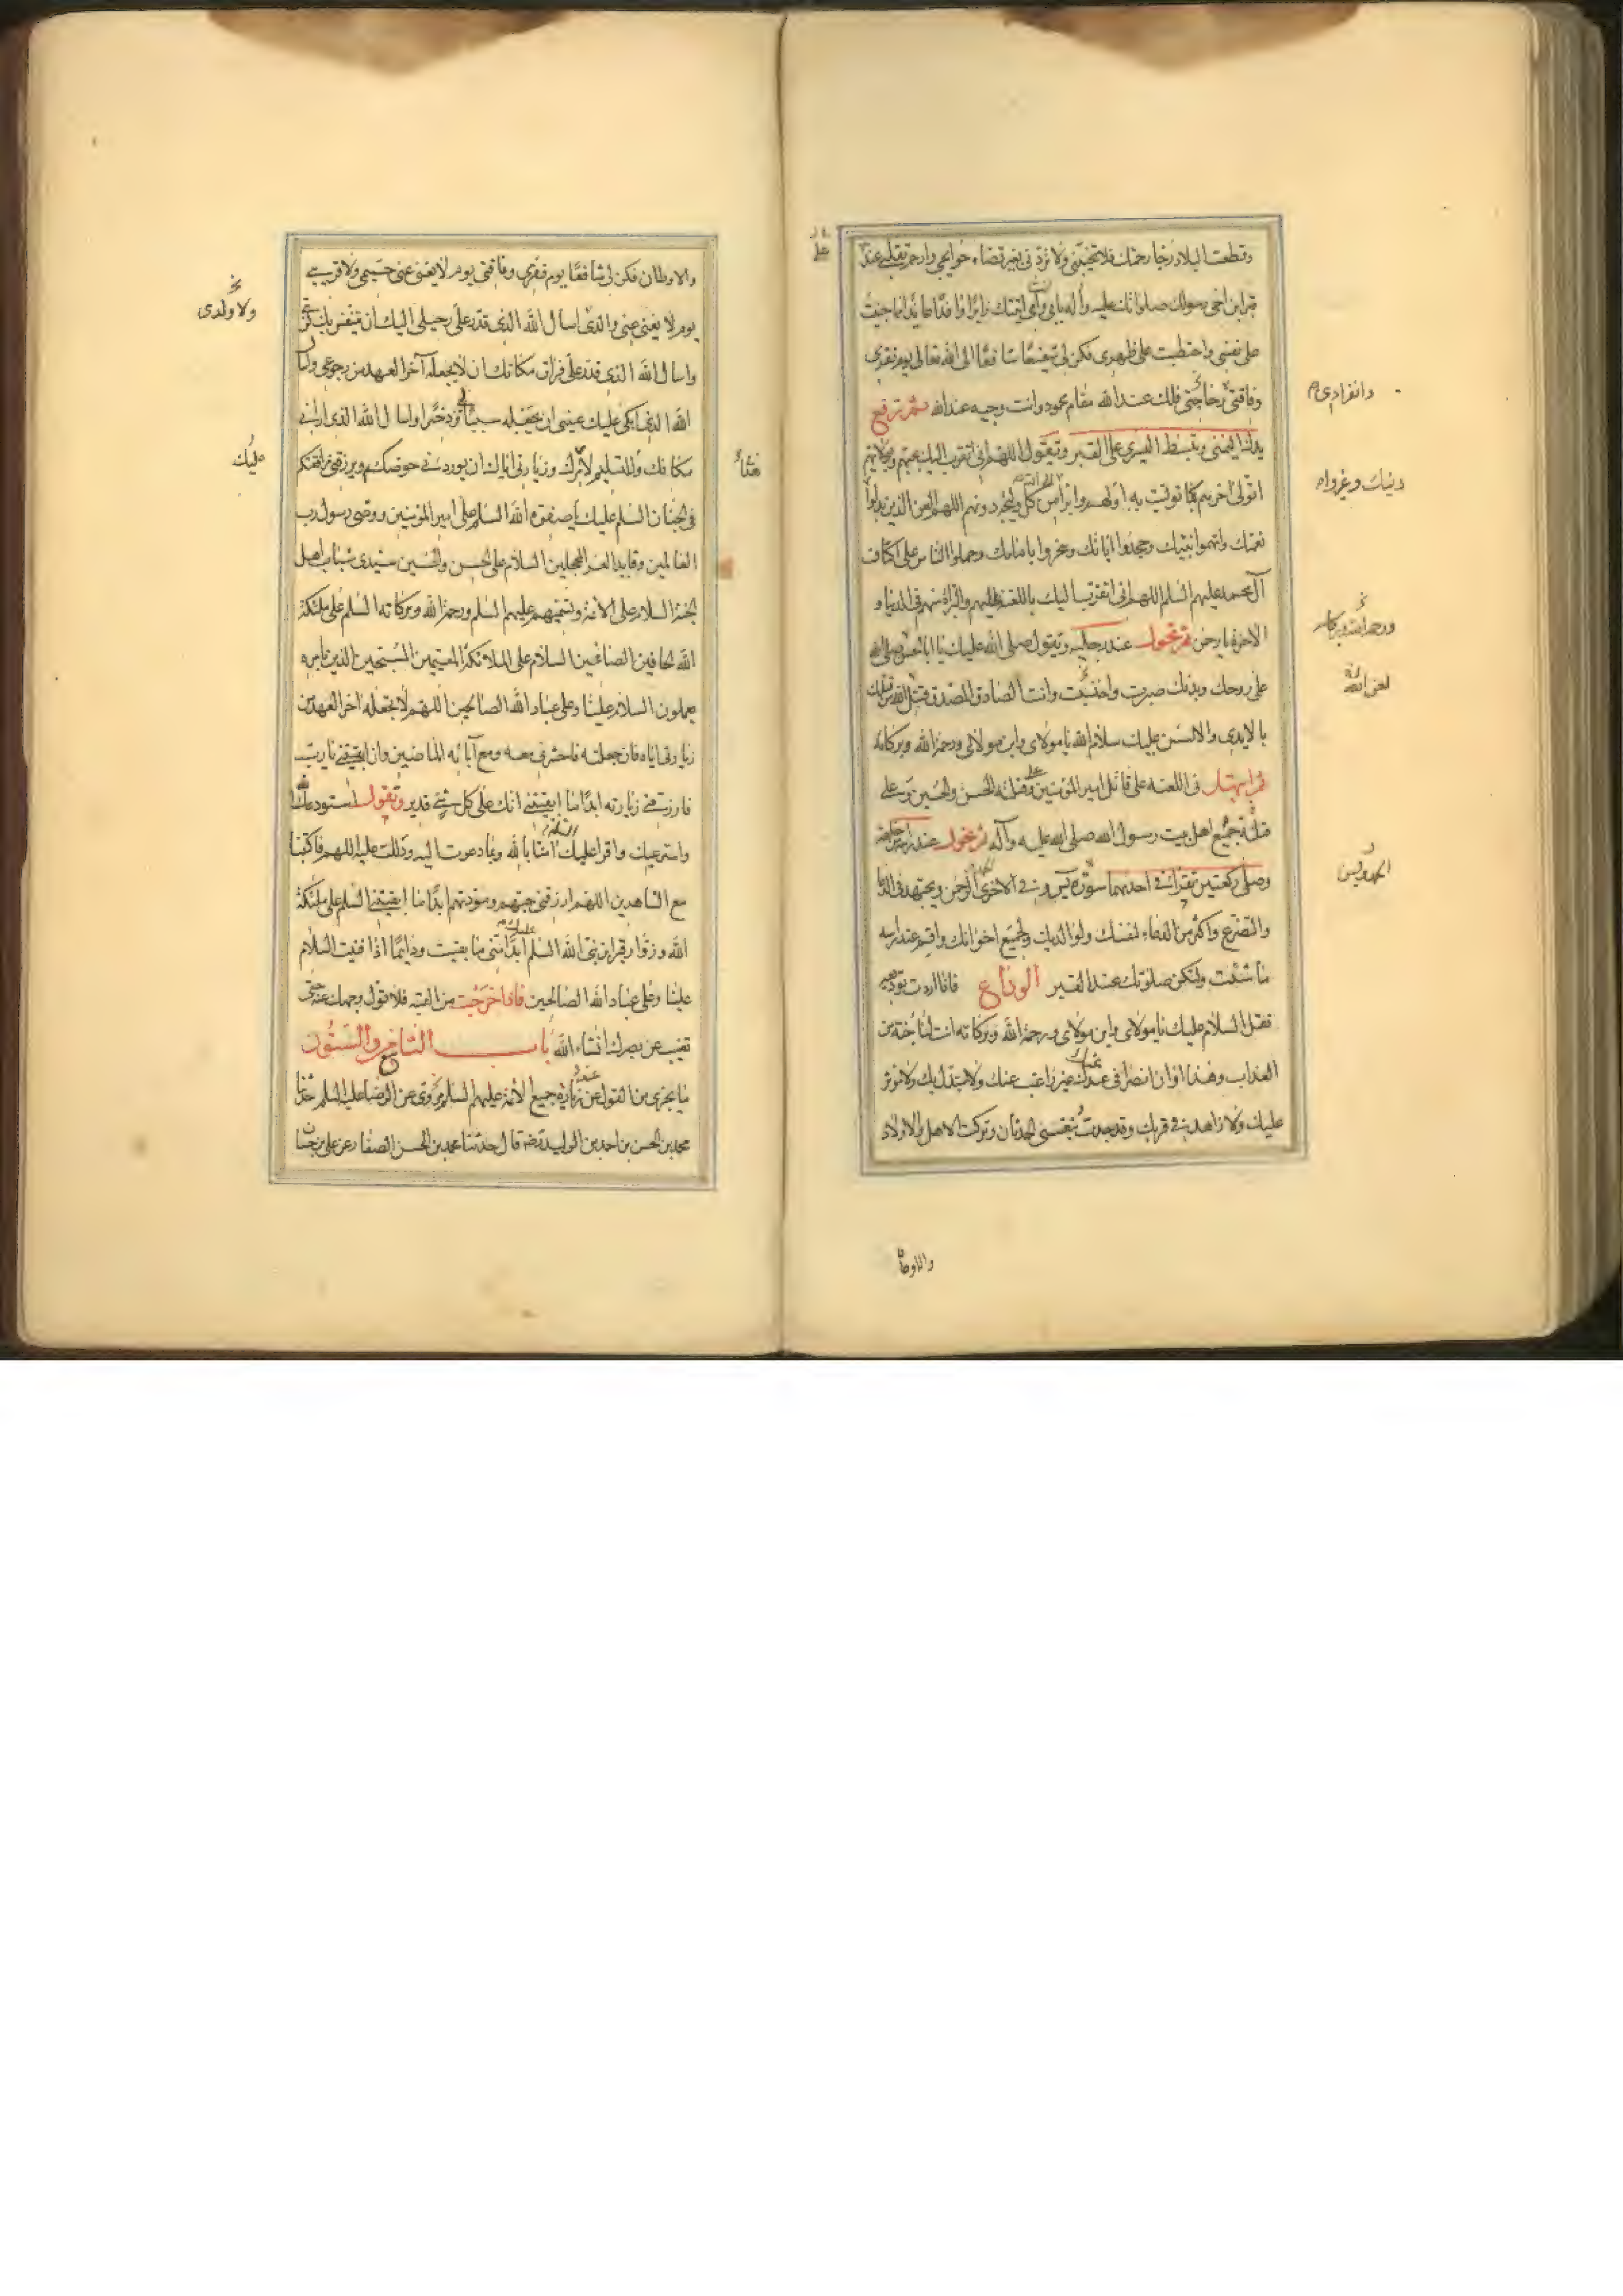 وقطعت البلاد رجاء رحمتك فلا تخيبني ولا تردني بغير قضاء حوايجي وارحم تقلبي عند
قبر ابن اخي رسولك صلواتك عليه وآله بابي وامي اتيتك زايرا وافدا عايذا مما جنيت
على نفسي واحتطبت على ظهري فكن لي شفيعا شافعا الى الله تعالى يوم فقري
وفاقتي حاجتي فلك عند الله مقام محمود وانت وجيه عند الله ثم ترفع
يدك اليمنى وتبسط اليسرى على القبر وتقول اللهم اني اتقرب اليك بحبهم وبولايتهم
اتولى آخرهم كما توليت به اولهم وابرأ من كل وليجة دونهم اللهم العن الذين بدلوا
نعمتك واتهموا نبيك وجحدوا آياتك وسخروا بامامك وحملوا الناس على اكتاف
آل محمد عليهم السلم اللهم اني اتقرب اليك باللعنة عليهم والبراءة منهم في الدنيا و
الاخرة يا رحمن ثم تحول عند رجليه وتقول صلى الله عليك يا ابا الحسن صلى الله
على روحك وبدنك صبرت واحتسبت وانت الصادق المصدق قتل الله من قتلك
بالايدي والالسن عليك سلام الله يا مولاي وابن مولاي ورحمة الله وبركاته
ثم ابتهل في اللعنة على قاتل امير المؤمنين وقتلة الحسن والحسين وعلى
قتلة جميع اهل بيت رسول الله صلى الله عليه وآله ثم تحول عند راسه من خلفه
وصلى ركعتين تقرأ في احدیهما سورة يس وفي الاخرى الرحمن ويجتهد في الدعا
والتضرع واكثر من الدعاء لنفسك ولوالديك ولجميع اخوانك واقم عند راسه
ما شئت ولتكن صلوتك عند القبر الوداع فاذا اردت توديعه
فقل السلام عليك يا مولاي وابن مولاي ورحمة الله وبركاته انت لنا جنة من
العذاب وهذا اوان انصرافي عنك غير راغب عنك ولا مستبدل بك ولا مؤثر
عليك ولا زاهد في قربك وقد جدت بنفسي للحدثان وتركت الاهل والاولاد
وانفرادي
دينك وغيروا
ورحمة الله وبركاته
لعن الله
الحمد ويس
والاوطان
والاوطان فكن لي شافعا يوم فقري وفاقتي يوم لا يغني عني حميمي ولا قريبي
يوم لا يغني عني والدي اسال الله الذي قدر علي رحيلي اليك ان ينفس بك كربتي
واسال الله الذي قدر علي فراق مكانك ان لا يجعله آخر العهد من رجوعي واسال
الله الذي ابكى عليك عيني ان يجعله سببا لي وذخرا واسال الله الذي اراني
مكانك وللتسليم عليك وزيارتي اياك ان يوردني حوضكم ويرزقني مرافقتكم
في الجنان السلم عليك يا صفوة الله السلم على امير المؤمنين ووصي رسول رب
العالمين وقايد الغر المحجلين السلام على الحسن والحسين سيدي شباب اهل
الجنة السلام على الائمة وتسميهم عليهم السلم ورحمة الله وبركاته السلم على ملئكة
الله الحافين الصافين السلام على الملائكة المقيمين المسبحين الذين بامره
يعملون السلام علينا وعلى عباد الله الصالحين اللهم لا تجعله آخر العهد من
زيارتي اياه فان جعلته فاحشرني معه ومع آبائه الماضين وان ابقيتني يا رب
فارزقني زيارته ابدا ما ابقيتني انك على كل شئ قدير وتقول استودعك الله
واسترعيك واقرأ عليك السلام امنا بالله وبما دعوت اليه ودللت عليه اللهم فاكتبنا
مع الشاهدين اللهم ارزقني حبهم ومودتهم ابدا ما ابقيتني السلم على ملئكة
الله وزوار قبر ابن نبي الله السلم عليك ابدا مني ما بقيت ودايما اذا فنيت السلام
علينا وعلى عباد الله الصالحين فاذا خرجت من القبة فلا تول وجهك عنه حتى
تغيب عن بصرك انشاء الله باب التاسع والستون
ما يجزي من القول عند زيارة جميع الائمة عليهم السلم روي عن الرضا عليه السلم حدثنا
محمد بن الحسن بن احمد بن الوليد رضه قال حدثنا محمد بن الحسن الصفار عن علي بن حسان
ولا ولدي
عليك